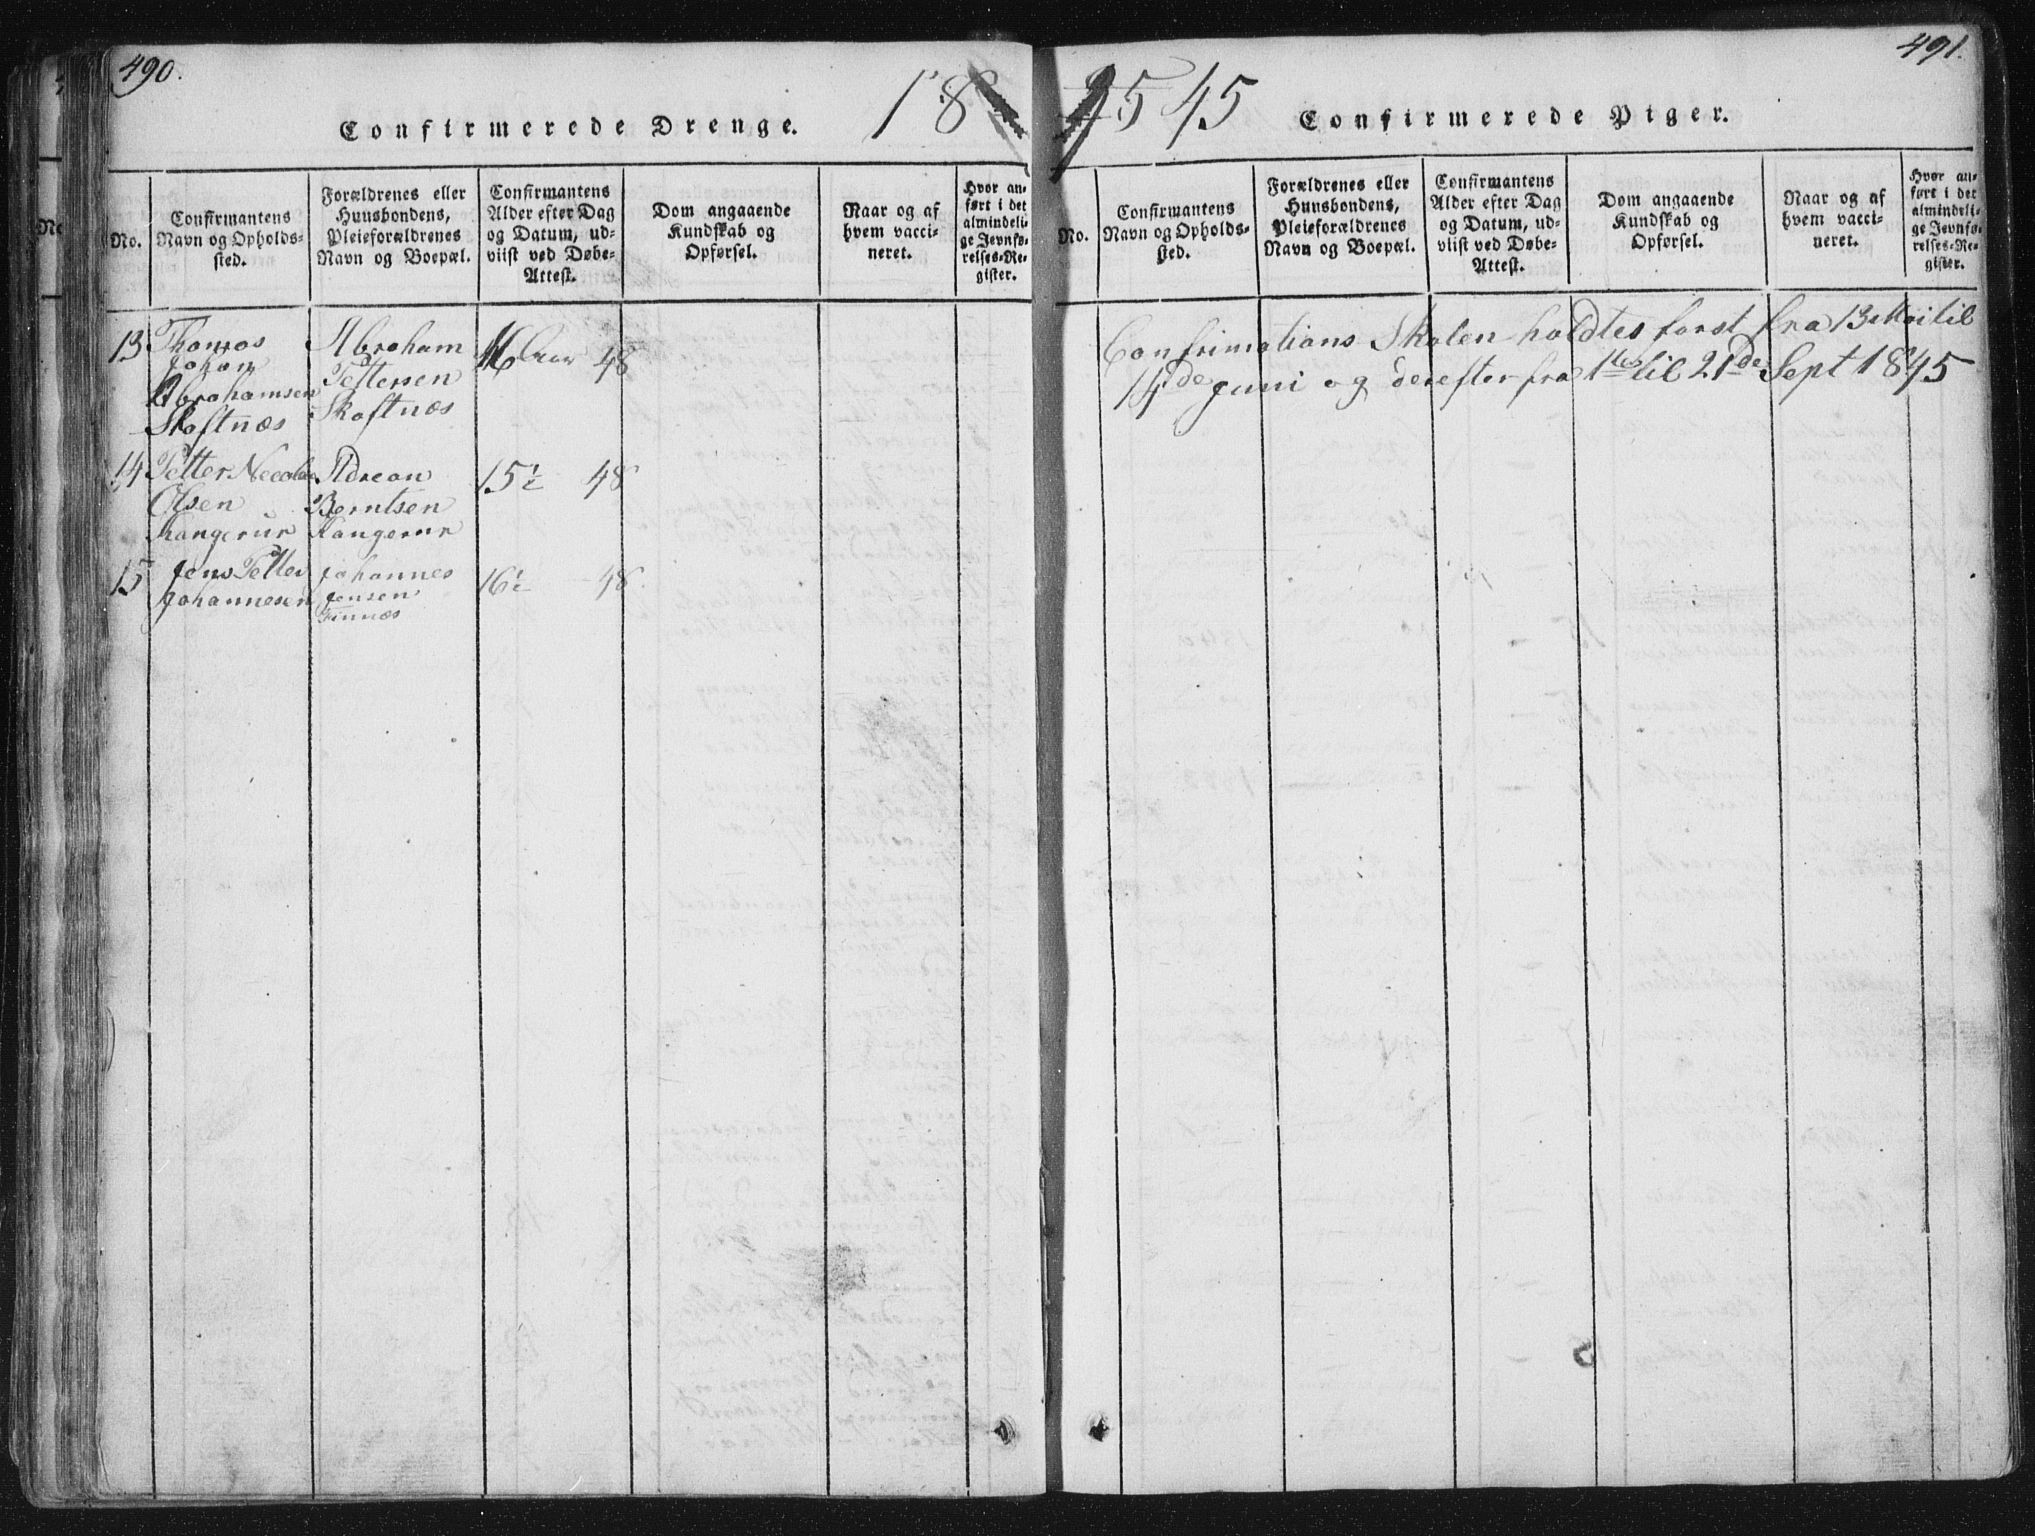 490.
Confirmerede Drenge.
18
No.
Confirmantens
Navn og Opholds-
sted.
Forældrenes eller
Huusbondens,
Pleieforældrenes
Navn og Boepæl.
Confirmantens
Alder efter Dag
og Datum, ud-
viist ved Døbe-
Attest.
Dom angaaende
Kundskab og
Opførsel.
Naar og af
hvem vacci-
neret.
Hvor an-
ført i det
almindeli-
ge Jevnfø-
relses-Re-
gister.
13 Thomas Abraham 16 Aar 48
Johan Pettersen
Abrahamsen Skaftnæs
Skaftnæs
14 Petter Adrean 15½ 48
Olsen Berntsen
15 Jens Petter Johannes 16½ 48
Johannesen Jensen
Finnæs
491.
45
Confirmerede Piger.
No.
Confirmantens
Navn og Opholds-
sted.
Forældrenes eller
Huusbondens,
Pleieforældrenes
Navn og Boepæl.
Confirmantens
Alder efter Dag
og Datum, ud-
viist ved Døbe-
Attest.
Dom angaaende
Kundskab og
Opførsel.
Naar og af
hvem vacci-
neret.
Hvor an-
ført i det
almindeli-
ge Jevnfø-
relses-Re-
gister.
Confrimations Skolen holdtes først fra 13 Mai til
14de Juni og derefter fra 1ste til 21de Sept 1845